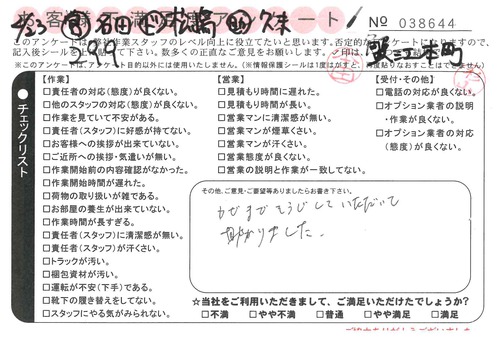 お客様満足度アンケート！
№ 038644
このアンケートは弊社作業スタッフのレベル向上に役立てたいと思います。否定的
数多くの正直なご意見をお願い致します。
※このアンケートは目的以外には使用いたしません。(※情報保護シールは1度はがすと、
チェックリスト
【作業】
□責任者の対応(態度)が良くない。
□他のスタッフの対応(態度)が良くない。
□作業を見ていて不安がある。
□責任者(スタッフ)に好感が持てない。
□お客様への挨拶が出来ていない。
□ご近所への挨拶・気遣いが無い。
□作業開始前の内容確認がなかった。
□作業開始時間が遅れた。
□荷物の取り扱いが雑である。
□お部屋の養生が出来ていない。
□作業時間が長すぎる。
□責任者(スタッフ)に清潔感が無い。
□責任者(スタッフ)が汗くさい。
□トラックが汚い。
□梱包資材が汚い。
□運転が不安(下手)である。
□靴下の履き替えをしてない。
□スタッフにやる気がみられない。
【営業】
□見積もり時間に遅れた。
□見積もり時間が長い。
□営業マンに清潔感が無い。
□営業マンが煙草くさい。
□営業マンが汗くさい。
□営業態度が良くない。
□営業の説明と作業が一致してない。
【受付・その他】
□電話の対応が良くない。
□オプション業者の説明・作業が良くない。
□オプション業者の対応(態度)が良くない。
その他、ご意見・ご要望等ありましたらお書き下さい。
かぜまでそうじしていただいて
助かりました。
☆当社をご利用いただきまして、ご満足いただけたでしょうか?
□不満 □やや不満 □普通 □やや満足 □満足
ご協力ありがとうございました